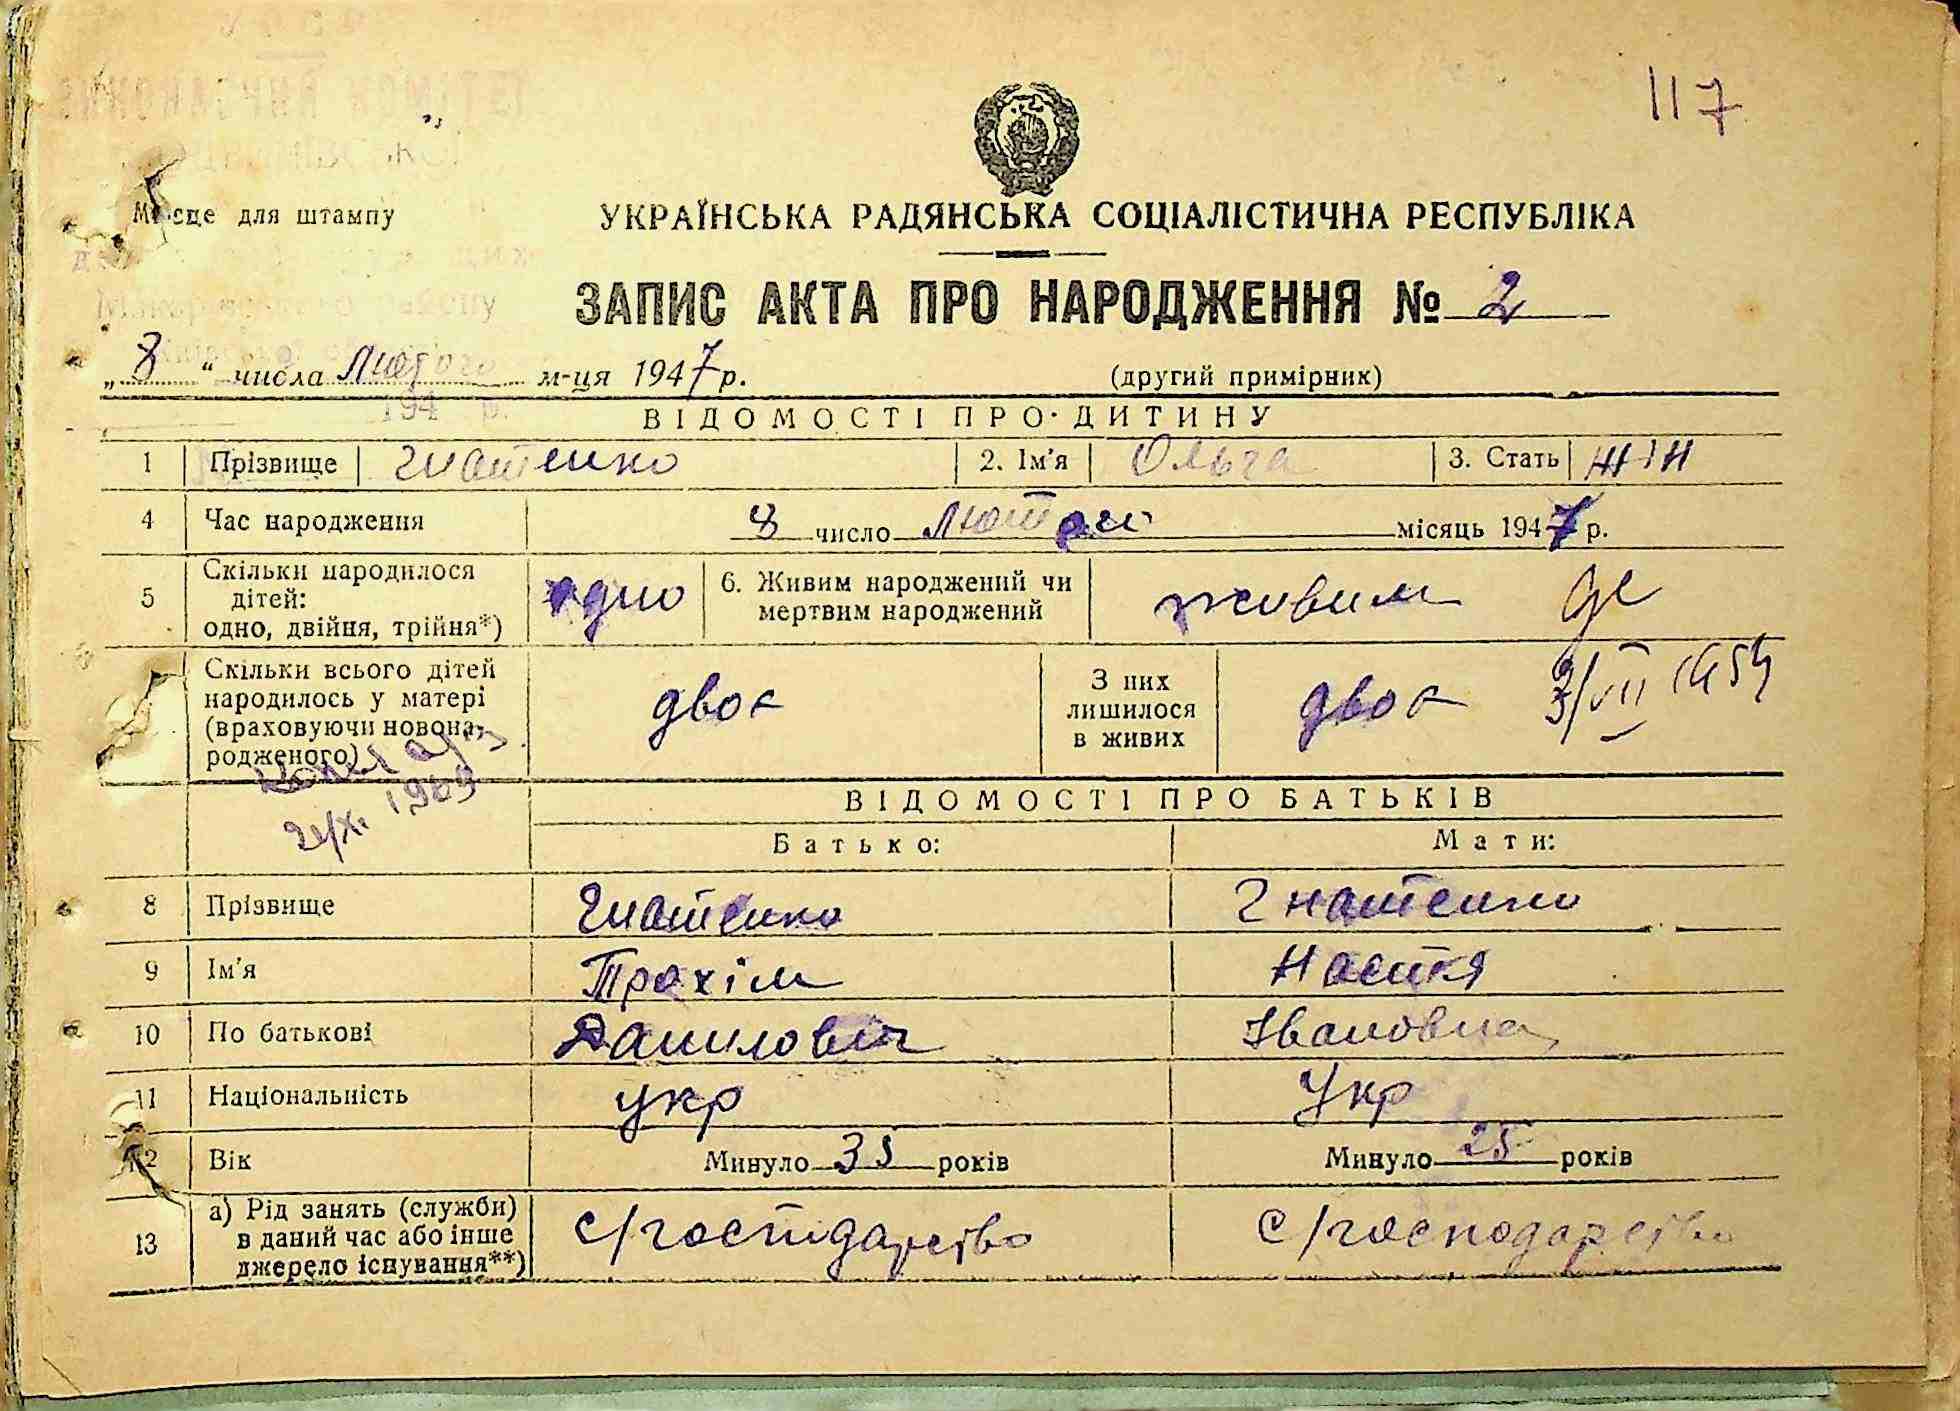 117
Місце для штампу
УКРАЇНСЬКА РАДЯНСЬКА СОЦІАЛІСТИЧНА РЕСПУБЛІКА
ЗАПИС АКТА ПРО НАРОДЖЕННЯ № 2
„8“ числа Лютого м-ця 1947 р. (другий примірник)
ВІДОМОСТІ ПРО ДИТИНУ
1 Прізвище Гнатенко 2. Ім'я Ольга 3. Стать жін
4 Час народження 8 число Лютого місяць 1947 р.
5 Скільки народилося дітей: одно, двійня, трійня*) одно 6. Живим народжений чи мертвим народжений живим
Скільки всього дітей народилось у матері (враховуючи новонародженого) двоє З них лишилося в живих двоє
3/VII 1954
1969
ВІДОМОСТІ ПРО БАТЬКІВ
Батько: Мати:
8 Прізвище Гнатенко Гнатенко
9 Ім'я Трохім Настя
10 По батькові Данилович Івановна
11 Національність укр Укр
12 Вік Минуло 35 років Минуло 25 років
13 а) Рід занять (служби) в даний час або інше джерело існування**) с/господарство с/господарство